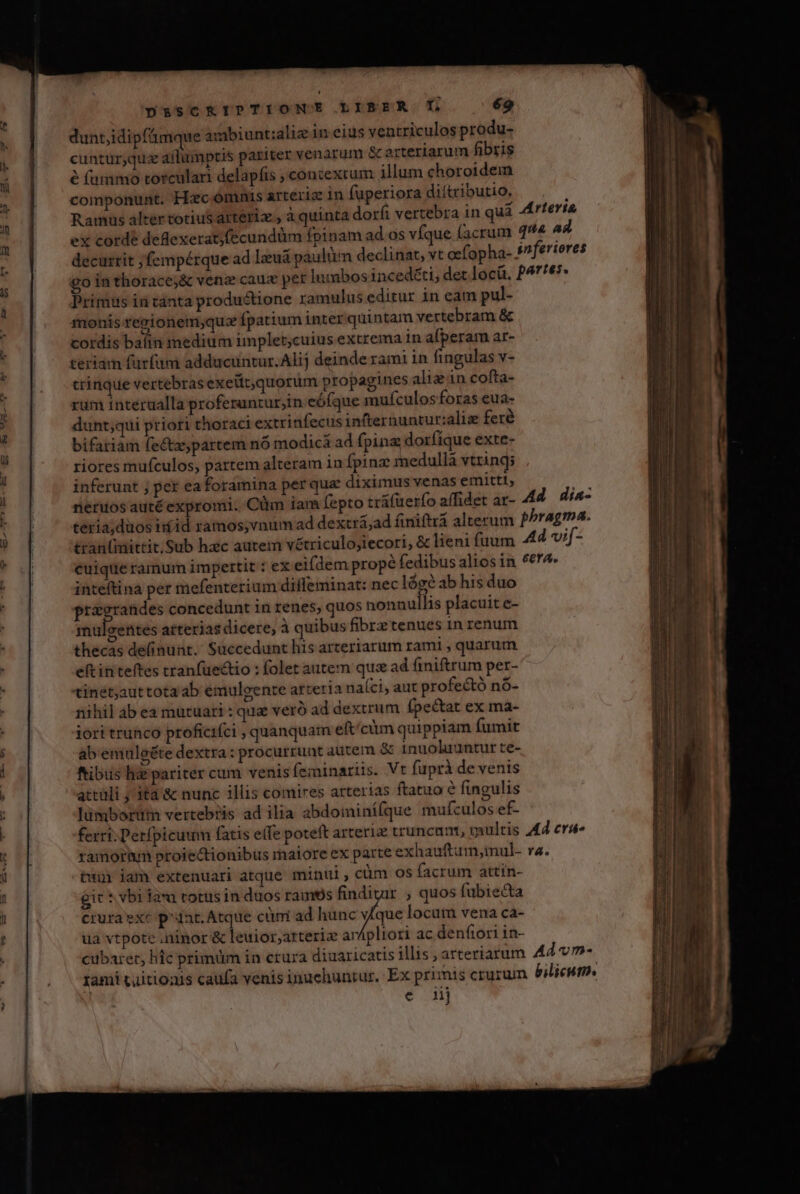 DESCRIPTIONE LIBER I. 69
dunt,idipſámque ambiunt:aliæ in eius ventriculos produ-
cuntur,quæ aſſumptis pariter venarum & arteriarum fibris
è ſummo torculari delapſis , contextum illum choroidem
componunt. Hæc omnis arteriæ in ſuperiora diſtributio.
Ramus alter totius arteriæ , à quinta dorſi vertebra in quá Arteria
ex corde deflexerat,ſecundùm ſpinam ad os vſque ſacrum quæ ad
decurrit ; ſempérque ad læuá paulùm declinat, vt œſopha- inferiores
go in thorace,& venæ cauæ per lumbos incedéti, det locú. partes.
Primus in tanta productione ramulus editur in eam pul-
monis regionem,quæ ſpatium inter quintam vertebram &
cordis baſin medium implet,cuius extrema in aſperam ar-
teriam ſurſum adducuntur.Alij deinde rami in ſingulas v-
trinque vertebras exeút,quorum propagines aliæ in coſta-
rum interualla proferuntur,in eóſque muſculos foras eua-
dunt,qui priori thoraci extrinſecus inſternuntur:aliæ ferè
bifariam ſectæ,partem nó modicá ad ſpinæ dorſique exte-
riores muſculos, partem alteram in ſpinæ medullá vtrinq;
inferunt ; per ea foramina per quæ diximus venas emitti,
neruos auté expromi. Cùm iam ſepto tráſuerſo aſſidet ar- Ad dia-
teria,duos in id ramos,vnum ad dextrá,ad ſiniſtrá alterum phragma.
tranſmittit.Sub hæc autem vétriculo,iecori, & lieni ſuum Ad viſ-
cuique ramum impertit : ex eiſdem propè ſedibus alios in cera.
inteſtina per meſenterium diſſeminat: nec lógè ab his duo
prægrandes concedunt in renes, quos nonnullis placuit e-
mulgentes arterias dicere, à quibus fibræ tenues in renum
thecas deſinunt. Succedunt his arteriarum rami , quarum
eſt in teſtes tranſuectio : ſolet autem quæ ad ſiniſtrum per-
tinet,aut tota ab emulgente arteria naſci, aut profectò nó-
nihil ab ea mutuari : quæ verò ad dextrum ſpectat ex ma-
iori trunco proficiſci , quanquam eſt cùm quippiam ſumit
ab emulgéte dextra : procurrunt autem & inuoluuntur te-
ſtibus hæ pariter cum venis ſeminariis. Vt ſuprà de venis
attuli , ita & nunc illis comites arterias ſtatuo è ſingulis
lumborum vertebris ad ilia abdominiſque muſculos ef-
ferri. Perſpicuum ſatis eſſe poteſt arteriæ truncum, multis Ad cru-
ramorum proiectionibus maiore ex parte exhauſtum,mul- ra.
tum iam extenuari atque minui , cùm os ſacrum attin-
git : vbi iam totus in duos ramos finditur , quos ſubiecta
crura excipiunt. Atque cùm ad hunc vſque locum vena ca-
ua vtpote minor & leuior,arteriæ ampliori ac denſiori in-
cubaret, hîc primùm in crura diuaricatis illis , arteriarum Ad vm-
rami tuitionis cauſa venis inuehuntur. Ex primis crurum bilicum.
e iij